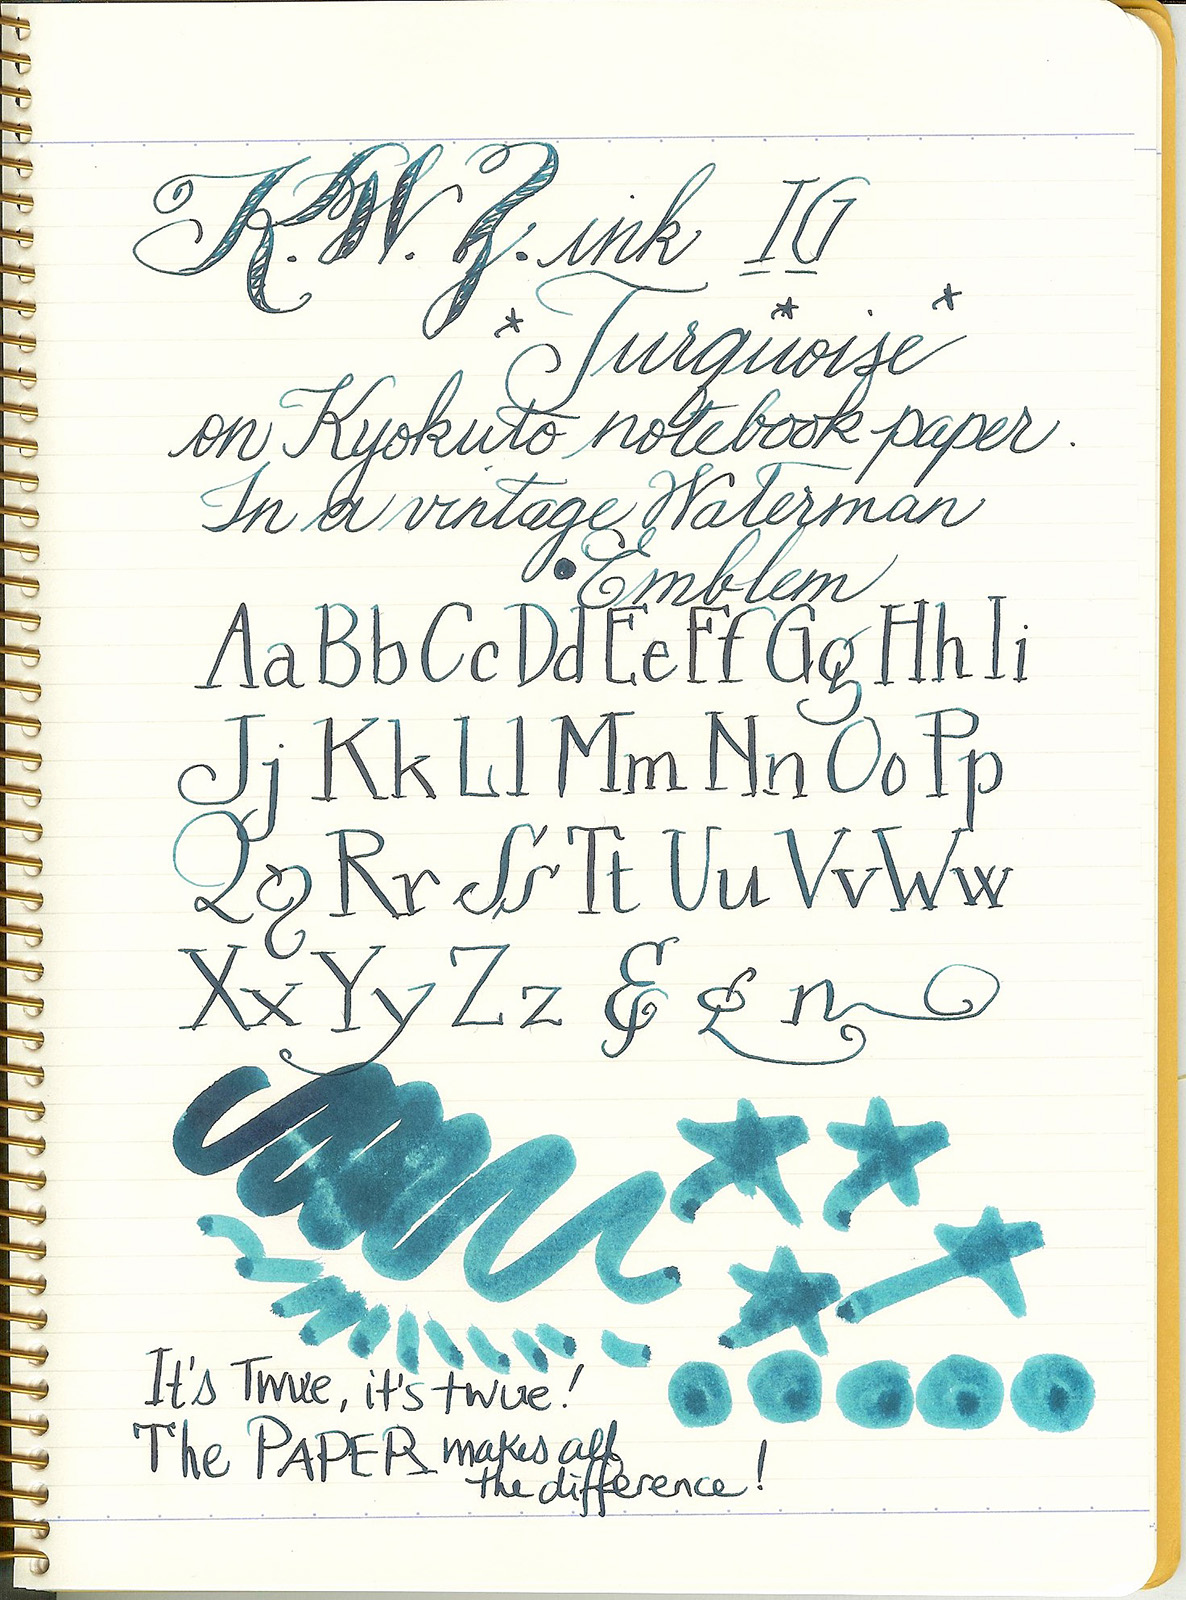 K.W.Z. ink IG
* Turquoise *
on Kyokuto notebook paper.
In a vintage Waterman
• Emblem
Aa Bb Cc Dd Ee Ff Gg Hh Ii
Jj Kk Ll Mm Nn Oo Pp
Qq Rr Ss Tt Uu Vv Ww
Xx Yy Zz & & n
It's Twue, it's twue!
The PAPER makes all
the difference!